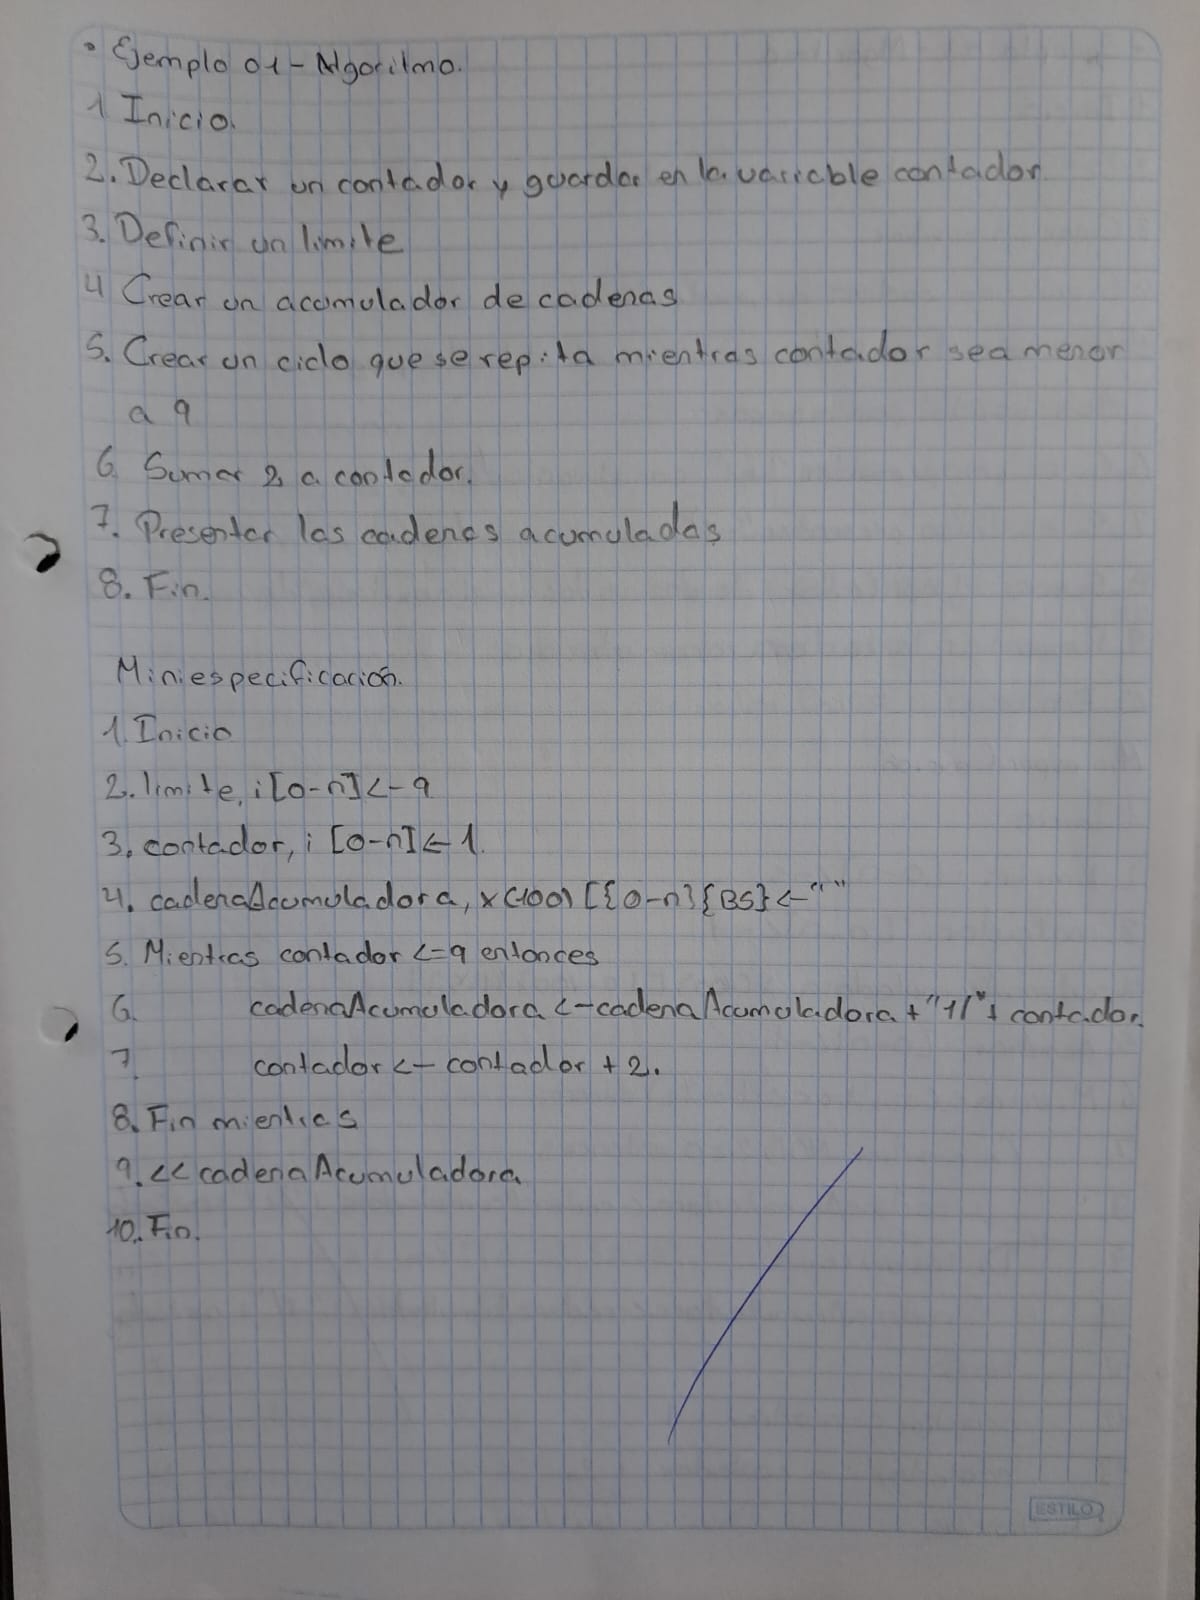 • Ejemplo 01 - Algoritmo.
1 Inicio.
2. Declarar un contador y guardar en la variable contador
3. Definir un limite
4 Crear un acumulador de cadenas
5. Crear un ciclo que se repita mientras contador sea menor
a 9
6. Sumar 2 a contador.
7. Presentar las cadenas acumuladas
8. Fin.
Miniespecificación.
1. Inicio
2. limite, i [0-n] <- 9
3. contador, i [0-n] <- 1.
4. cadenaAcumuladora, x(100) [{0-n}{BS} <- " "
5. Mientras contador <= 9 entonces
6. cadenaAcumuladora <- cadenaAcumuladora + "1/" + contador.
7. contador <- contador + 2.
8. Fin mientras
9. << cadenaAcumuladora
10. Fin.
ESTILO